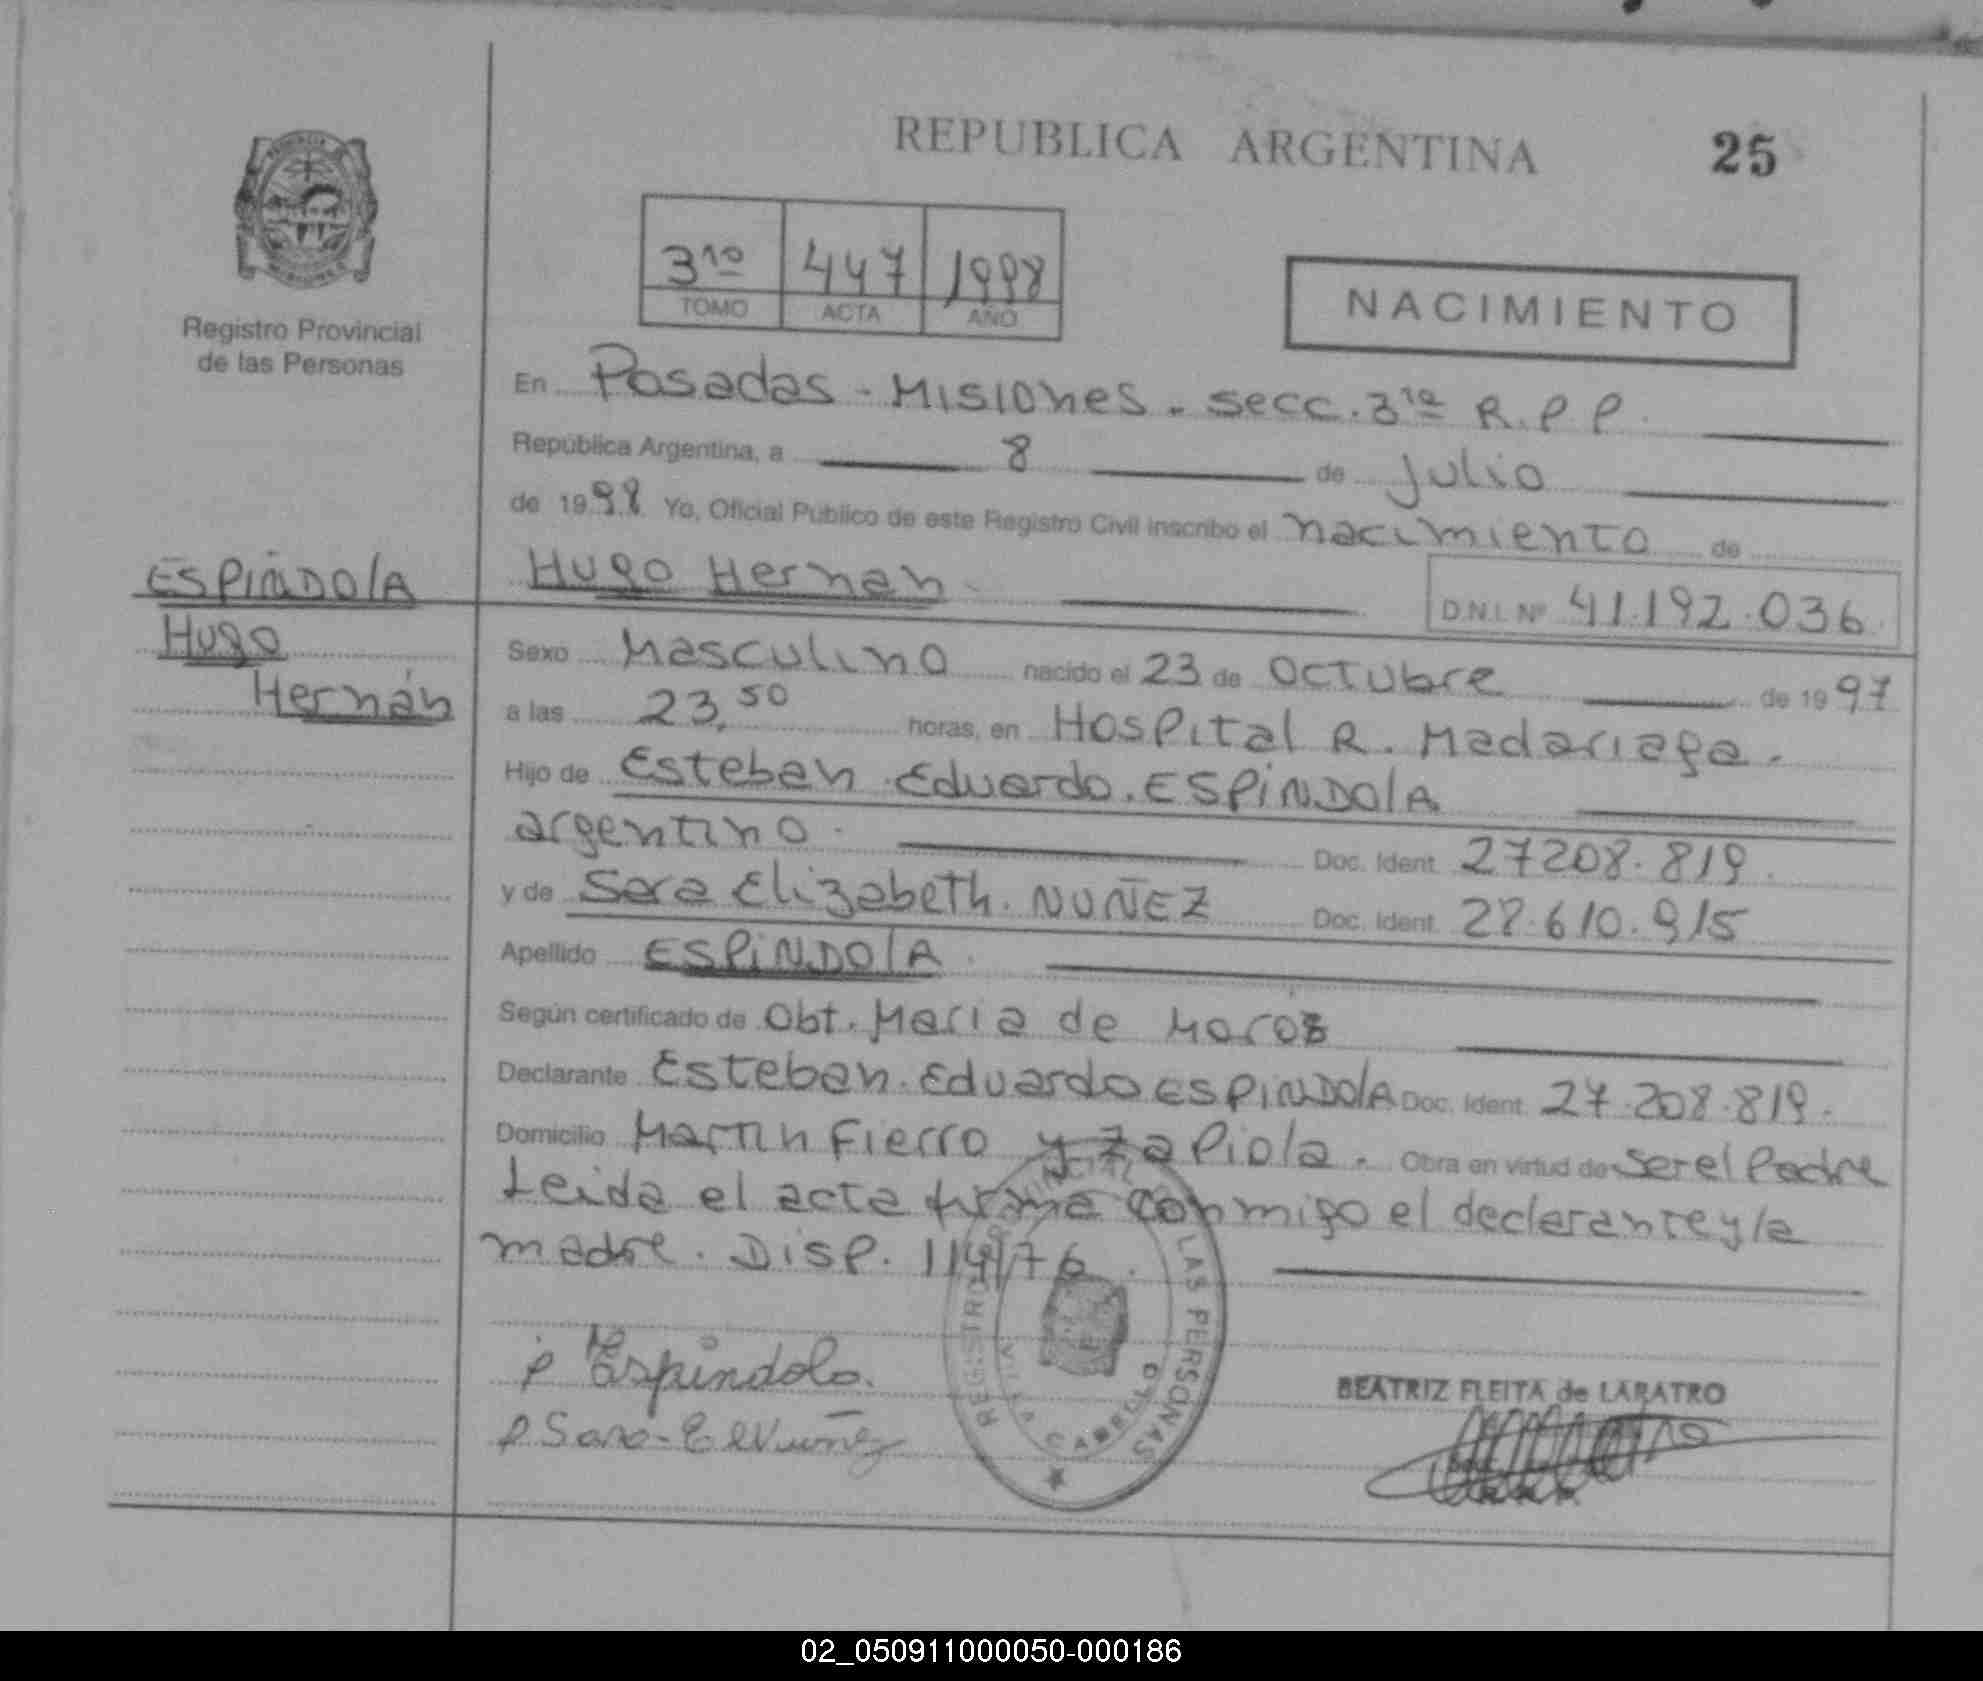 REPUBLICA ARGENTINA 25
3ro 447 1998
TOMO ACTA AÑO
NACIMIENTO
Registro Provincial
de las Personas
En Posadas - Misiones - secc. 3ra R.P.P.
República Argentina, a 8 de Julio
de 1998 Yo, Oficial Público de este Registro Civil inscribo el nacimiento de
ESPÍNDOLA
Hugo
Hernán
Hugo Hernan
D.N.I. Nº 41.192.036
Sexo Masculino nacido el 23 de Octubre de 1997
a las 23,50 horas, en Hospital R. Madariaga.
Hijo de Esteban Eduardo. ESPÍNDOLA
argentino. Doc. Ident. 27208.819.
y de Sara Elizabeth. NUÑEZ Doc. Ident. 28.610.915
Apellido ESPÍNDOLA.
Según certificado de Obt. Maria de
Declarante Esteban Eduardo ESPINDOLA Doc. Ident. 27.208.819.
Domicilio Martin Fierro y Zapiola. Obra en virtud de ser el Padre
Leida el acta firma conmigo el declarante y la
madre. Disp. 114/76.
Espíndola.
Sara E Nuñez
REGISTRO PROVINCIAL DE LAS PERSONAS
VILLA CABELLO
BEATRIZ FLEITA de LABATRO
02_050911000050-000186